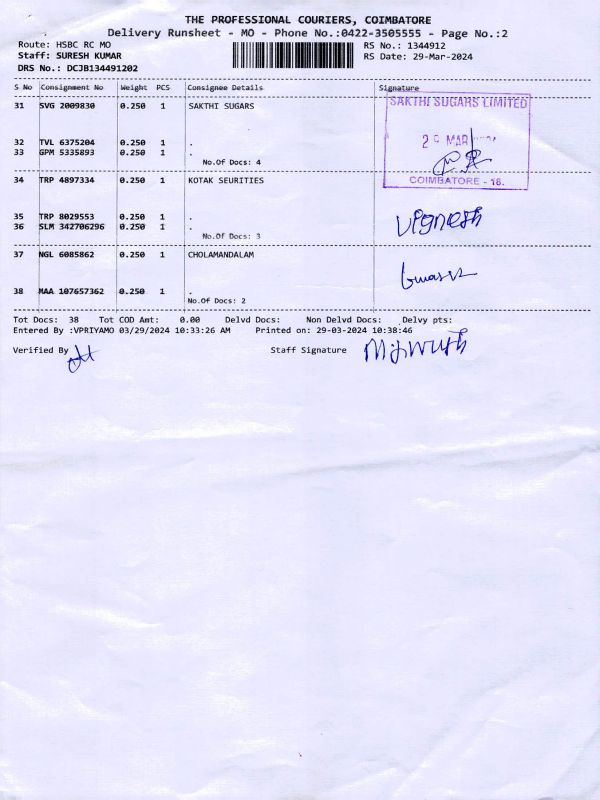 THE PROFESSIONAL COURIERS, COIMBATORE
Delivery Runsheet - MO - Phone No.:0422-3505555 - Page No.:2
Route: HSBC RC MO RS No.: 1344912
Staff: SURESH KUMAR RS Date: 29-Mar-2024
DRS No.: DCJB134491202
S No Consignment No Weight PCS Consignee Details Signature
31 SVG 2009830 0.250 1 SAKTHI SUGARS
SAKTHI SUGARS LIMITED
32 TVL 6375204 0.250 1 .
MAR
33 GPM 5335893 0.250 1 .
No.Of Docs: 4
34 TRP 4897334 0.250 1 KOTAK SEURITIES
COIMBATORE - 18.
35 TRP 8029553 0.250 1 .
Vignesh
36 SLM 342706296 0.250 1 .
No.Of Docs: 3
37 NGL 6085862 0.250 1 CHOLAMANDALAM
38 MAA 107657362 0.250 1 .
No.Of Docs: 2
Tot Docs: 38 Tot COD Amt: 0.00 Delvd Docs: Non Delvd Docs: Delvy pts:
Entered By :VPRIYAMO 03/29/2024 10:33:26 AM Printed on: 29-03-2024 10:38:46
Verified By Staff Signature